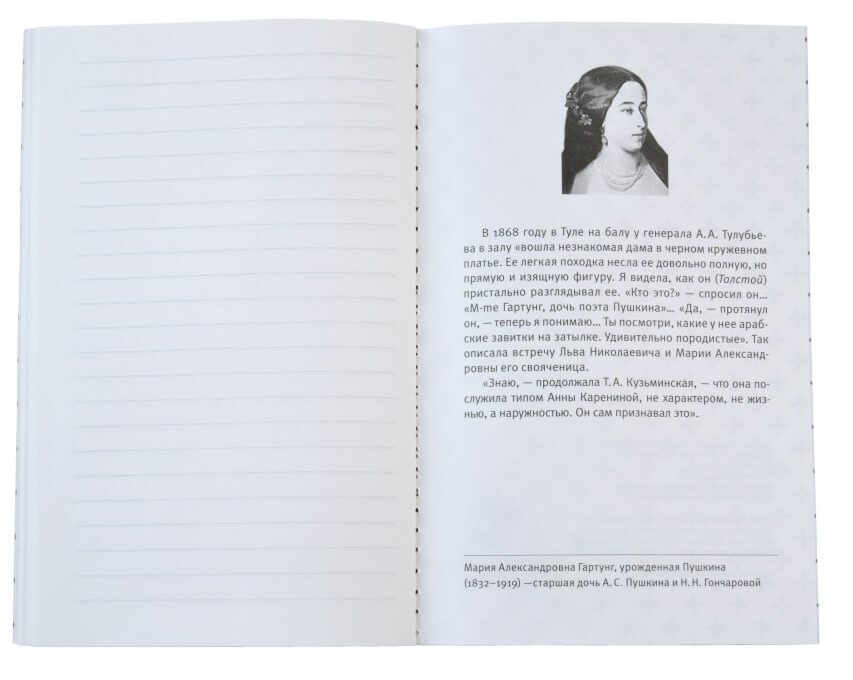 В 1868 году в Туле на балу у генерала А.А. Тулубье-
ва в залу «вошла незнакомая дама в черном кружевном
платье. Ее легкая походка несла ее довольно полную, но
прямую и изящную фигуру. Я видела, как он (Толстой)
пристально разглядывал ее. «Кто это?» — спросил он...
«М-me Гартунг, дочь поэта Пушкина»... «Да, — протянул
он, — теперь я понимаю... Ты посмотри, какие у нее араб-
ские завитки на затылке. Удивительно породистые». Так
описала встречу Льва Николаевича и Марии Александ-
ровны его свояченица.
«Знаю, — продолжала Т.А. Кузьминская, — что она по-
служила типом Анны Карениной, не характером, не жиз-
нью, а наружностью. Он сам признавал это».
Мария Александровна Гартунг, урожденная Пушкина
(1832–1919) —старшая дочь А.С. Пушкина и Н.Н. Гончаровой